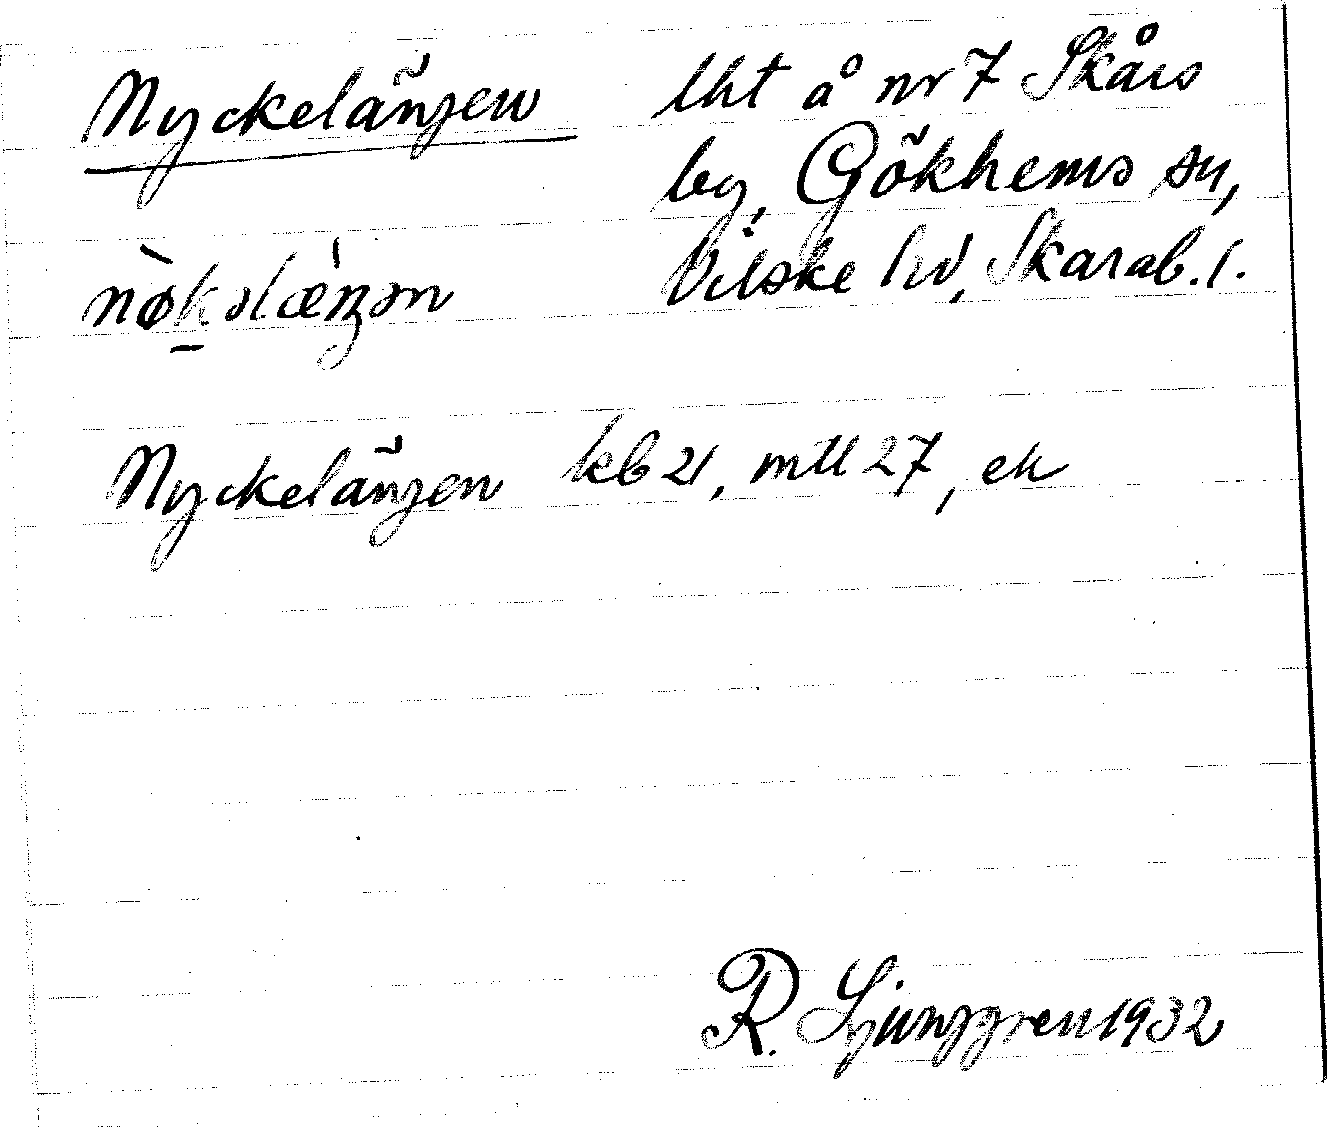 Nyckelängen lht å nr 7 Skårs
by, Gökhems sn,
nø̀kəlæ̀ŋən Vilske hd, Skarab. l.
Nyckelängen kb 21, mtl 27, ek
R. Ljunggren 1932